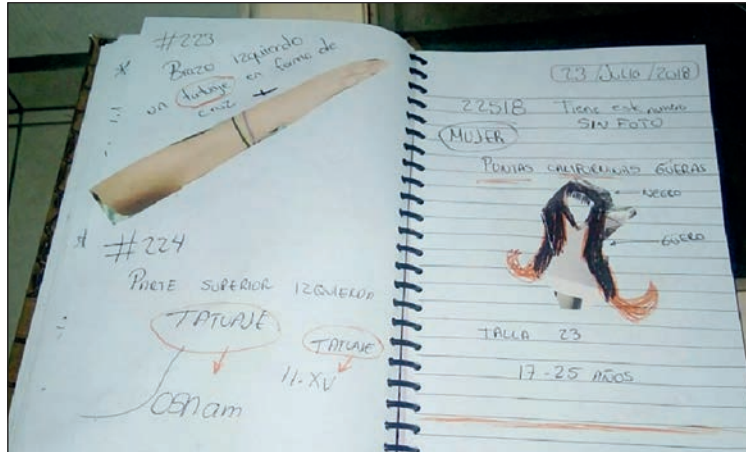 #223
* Brazo izquierdo
un tatuaje en forma de
cruz
#224
PARTE SUPERIOR IZQUIERDO
TATUAJE
TATUAJE
II.XV
23/JULIO/2018
22518 Tiene este numero
SIN FOTO
MUJER
PUNTAS CALIFORNINAS GÜERAS
NEGRO
GÜERO
TALLA 23
17-25 AÑOS